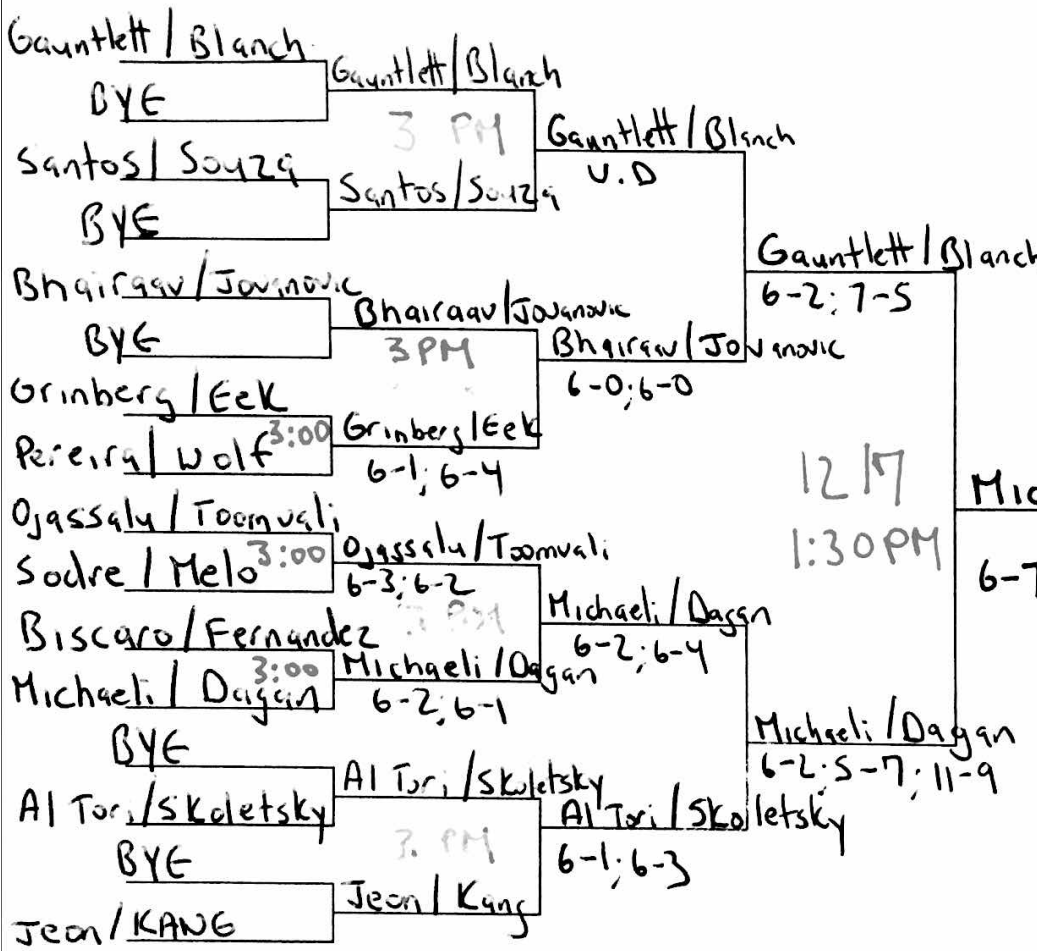 Gauntlett / Blanch
BYE
Santos / Souza
BYE
Bhairaav / Jovanovic
BYE
Grinberg / Eek
Pereira / Wolf 3:00
Ojassalu / Toomvali
Sodre / Melo 3:00
Biscaro / Fernandez
Michaeli / Dagan 3:00
BYE
Al Tori / Skoletsky
BYE
Jeon / KANG
Gauntlett / Blanch
3 PM
Santos / Souza
Bhairaav / Jovanovic
3 PM
Grinberg / Eek
6-1; 6-4
Ojassalu / Toomvali
6-3; 6-2
PM
Michaeli / Dagan
6-2; 6-1
Al Tori / Skoletsky
3. PM
Jeon / Kang
Gauntlett / Blanch
U.D
Bhairaav / Jovanovic
6-0; 6-0
Michaeli / Dagan
6-2; 6-4
Al Tori / Skoletsky
6-1; 6-3
Gauntlett / Blanch
6-2; 7-5
12/7
1:30 PM
Michaeli / Dagan
6-2; 5-7; 11-9
Mic
6-7